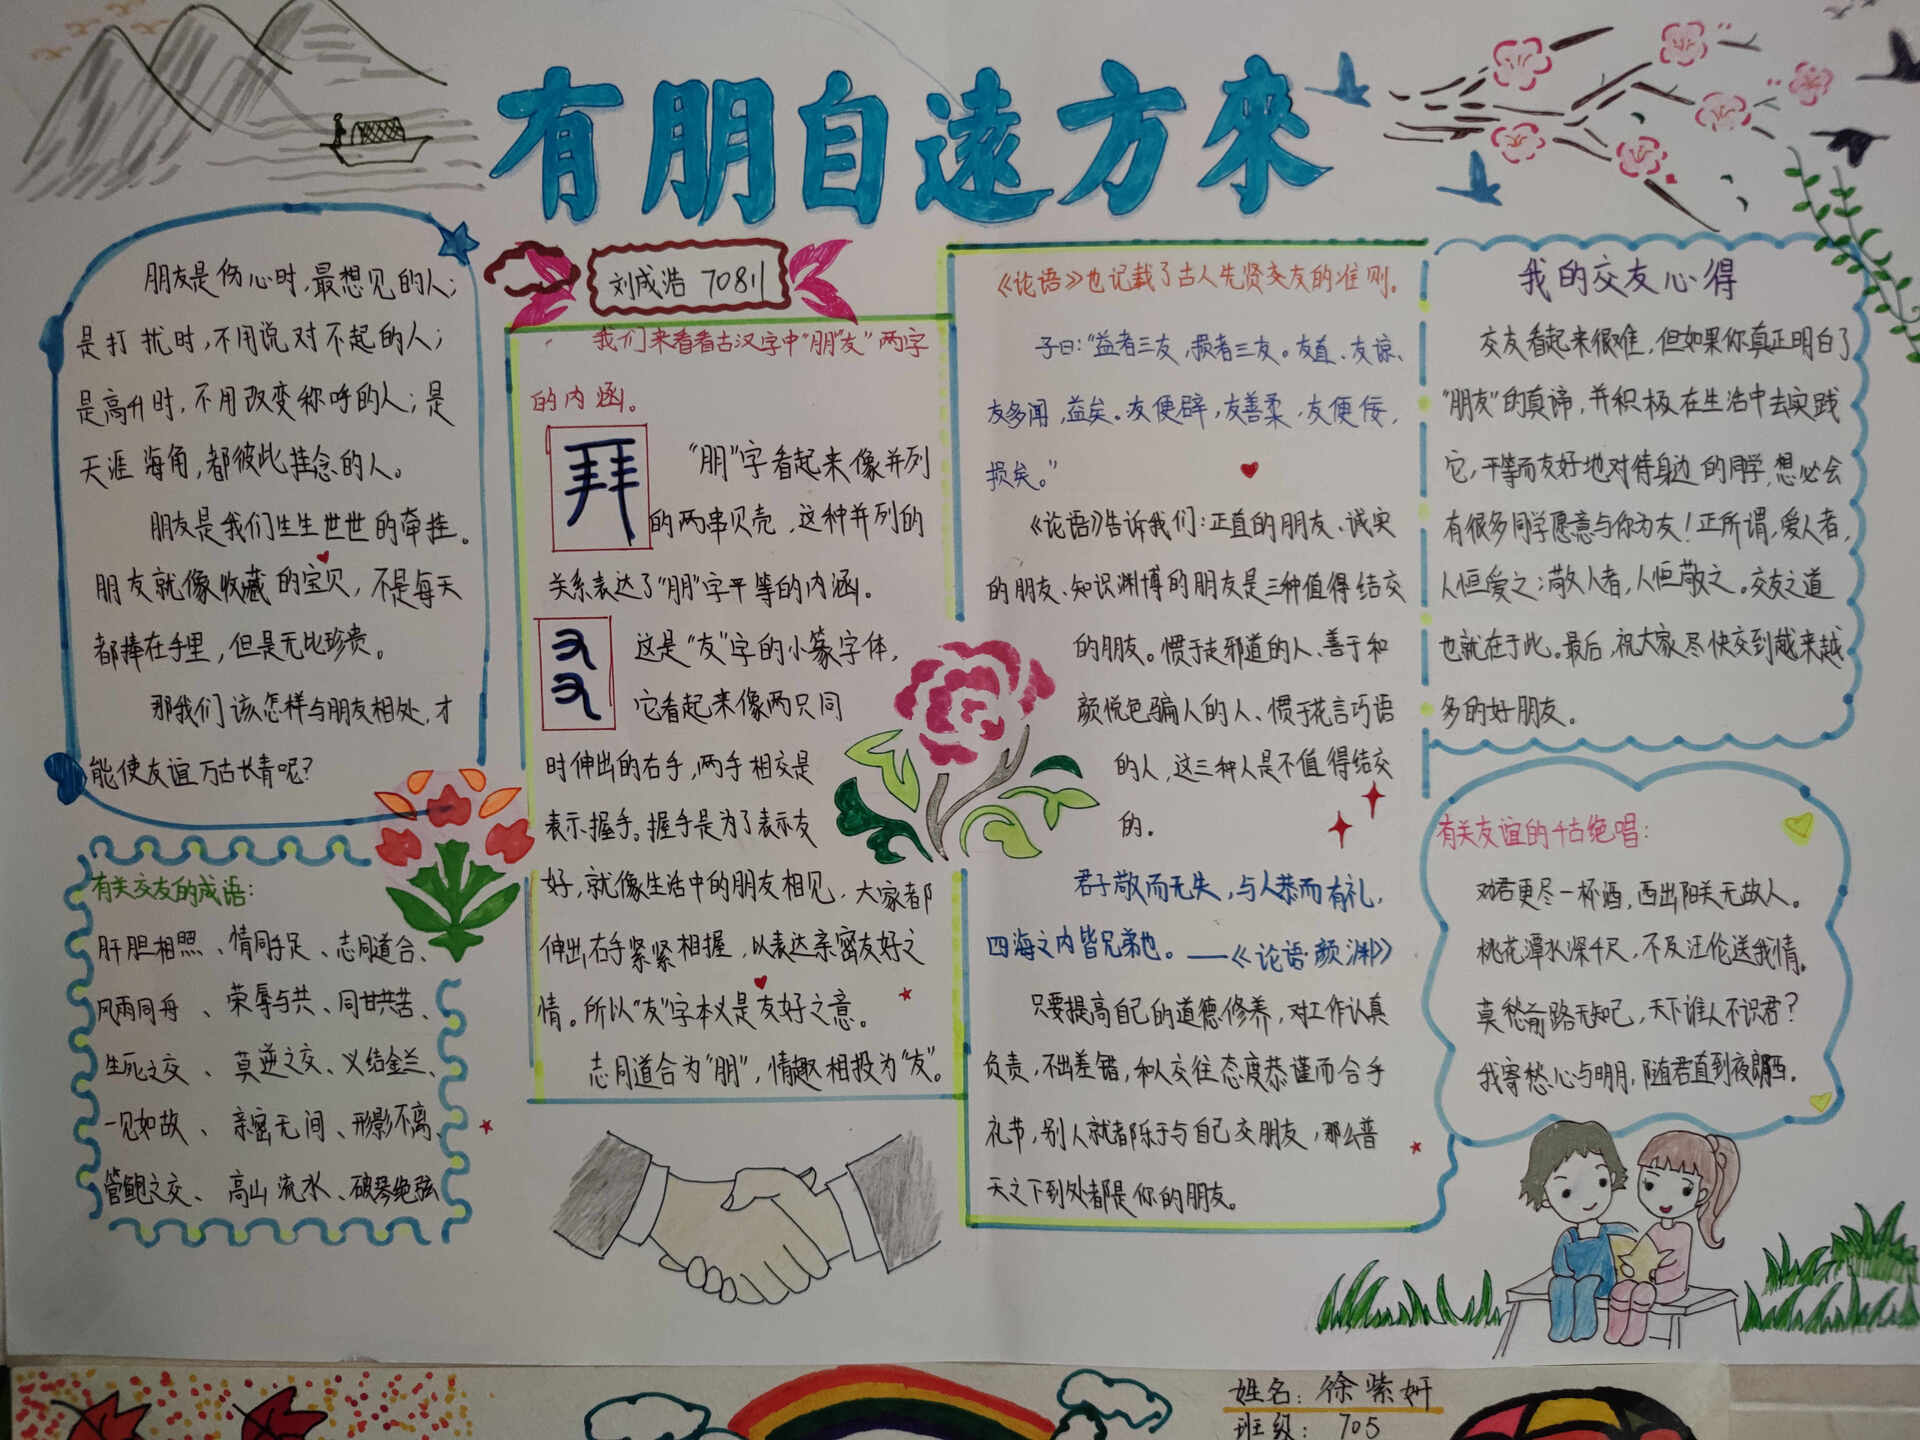 有朋自遠方來
朋友是伤心时,最想见的人;
是打扰时,不用说对不起的人;
是高升时,不用改变称呼的人;是
天涯海角,都彼此挂念的人。
朋友是我们生生世世的牵挂。
朋友就像收藏的宝贝,不是每天
都捧在手里,但是无比珍贵。
那我们该怎样与朋友相处,才
能使友谊万古长青呢?
有关交友的成语:
肝胆相照、情同手足、志同道合、
风雨同舟、荣辱与共、同甘共苦、
生死之交、莫逆之交、义结金兰、
一见如故、亲密无间、形影不离、
管鲍之交、高山流水、破琴绝弦
刘成浩 708川
我们来看看古汉字中“朋”“友”两字
的内涵。
“朋”字看起来像并列
的两串贝壳,这种并列的
关系表达了“朋”字平等的内涵。
这是“友”字的小篆字体,
它看起来像两只同
时伸出的右手,两手相交是
表示握手。握手是为了表示友
好,就像生活中的朋友相见,大家都
伸出右手紧紧相握,以表达亲密友好之
情。所以“友”字本义是友好之意。
志同道合为“朋”,情趣相投为“友”。
《论语》也记载了古人先贤交友的准则。
子曰:“益者三友,损者三友。友直、友谅、
友多闻,益矣。友便辟,友善柔,友便佞,
损矣。”
《论语》告诉我们:正直的朋友、诚实
的朋友、知识渊博的朋友是三种值得结交
的朋友。惯于走邪道的人、善于和
颜悦色骗人的人、惯于花言巧语
的人,这三种人是不值得结交
的。
君子敬而无失,与人恭而有礼,
四海之内皆兄弟也。——《论语·颜渊》
只要提高自己的道德修养,对工作认真
负责,不出差错,和人交往态度恭谨而合乎
礼节,别人就都乐于与自己交朋友,那么普
天之下到处都是你的朋友。
我的交友心得
交友看起来很难,但如果你真正明白了
“朋友”的真谛,并积极在生活中去实践
它,平等而友好地对待身边的同学,想必会
有很多同学愿意与你为友!正所谓,爱人者,
人恒爱之;敬人者,人恒敬之。交友之道
也就在于此。最后,祝大家尽快交到越来越
多的好朋友。
有关友谊的千古绝唱:
劝君更尽一杯酒,西出阳关无故人。
桃花潭水深千尺,不及汪伦送我情。
莫愁前路无知己,天下谁人不识君?
我寄愁心与明月,随君直到夜郎西。
姓名:徐紫妍
班级:705